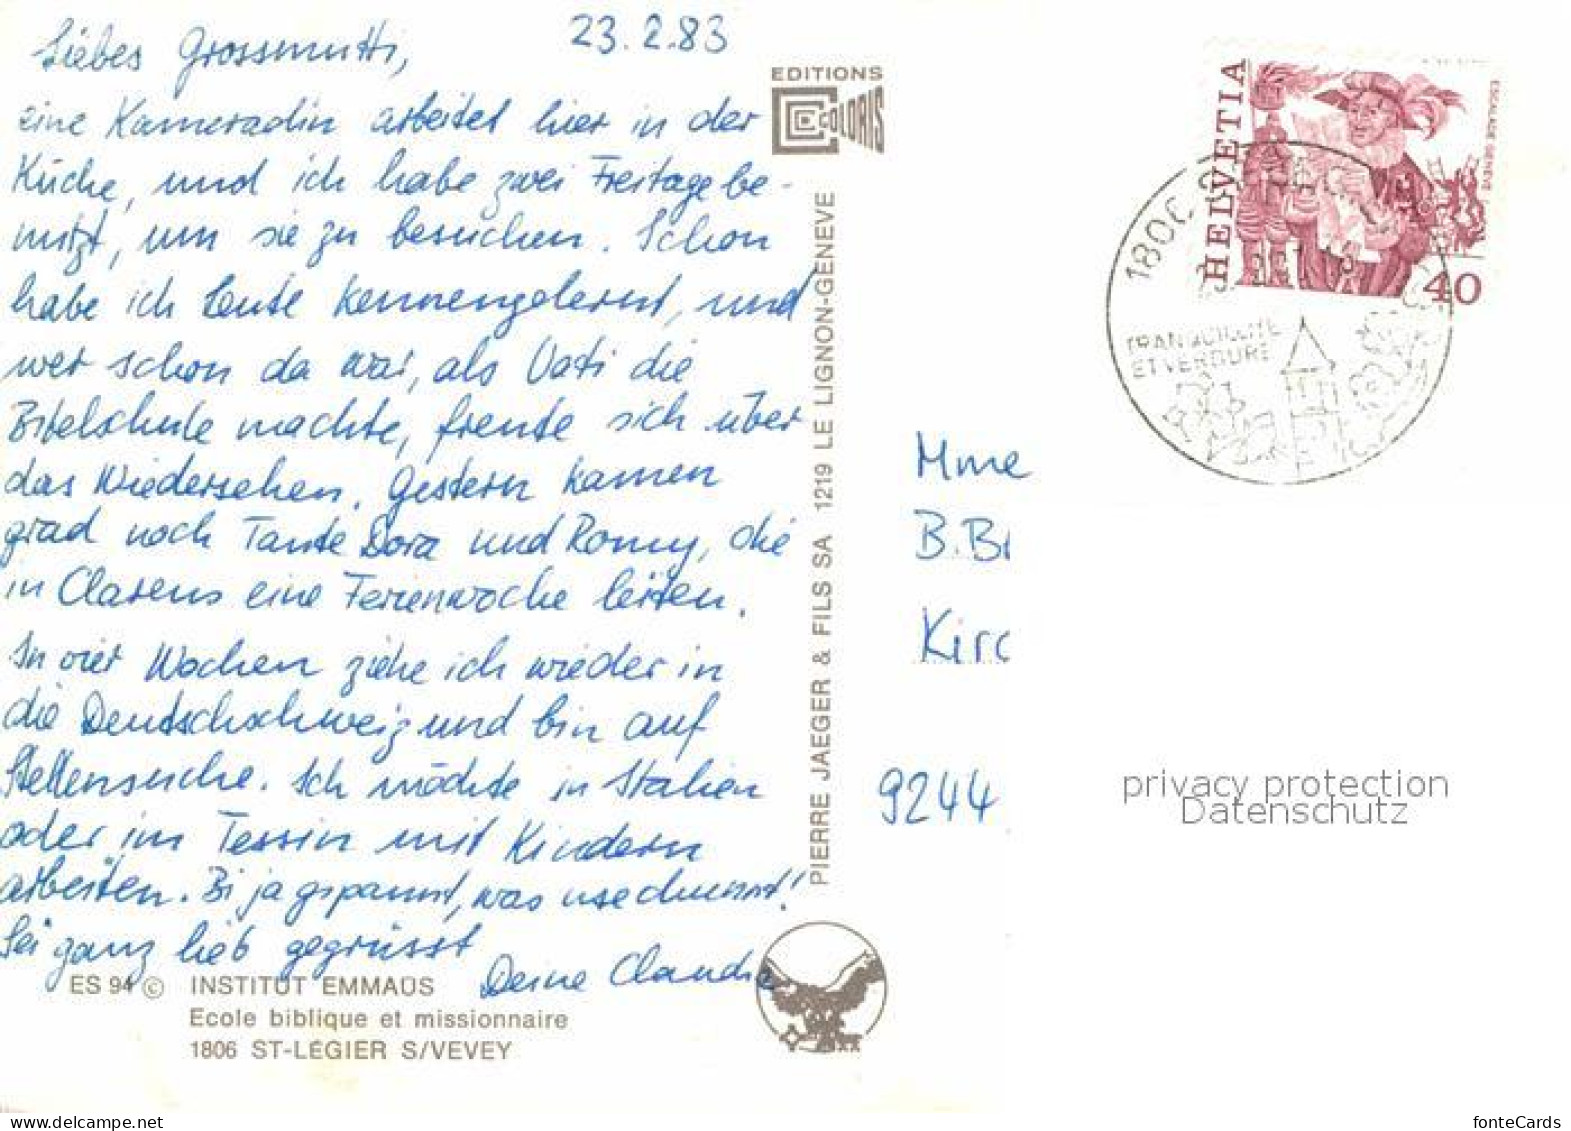 23.2.83
Liebes Grossmutti,
eine Kameradin arbeitet hier in der
Küche, und ich habe zwei Freitage be-
nützt, um sie zu besuchen. Schon
habe ich Leute kennengelernt, und
wer schon da war, als Vati die
Bibelschule machte, freute sich über
das Wiedersehen. Gestern kamen
grad noch Tante Dora und Romy, die
in Clarens eine Ferienwoche leiten.
In vier Wochen ziehe ich wieder in
die Deutschschweiz und bin auf
Stellensuche. Ich möchte in Italien
oder im Tessin mit Kindern
arbeiten. Bi ja gspannt, was usechunnt!
Sei ganz lieb gegrüsst
Deine Claudia
ES 94 © INSTITUT EMMAÜS
Ecole biblique et missionnaire
1806 ST-LÉGIER S/VEVEY
EDITIONS
COLORIS
PIERRE JAEGER & FILS SA 1219 LE LIGNON-GENÈVE
HELVETIA
ESCALADE GENÈVE
40
1800
TRANQUILLITE
ET VERDURE
Mme
B. Br
Kirc
9244
privacy protection
Datenschutz
fonteCards